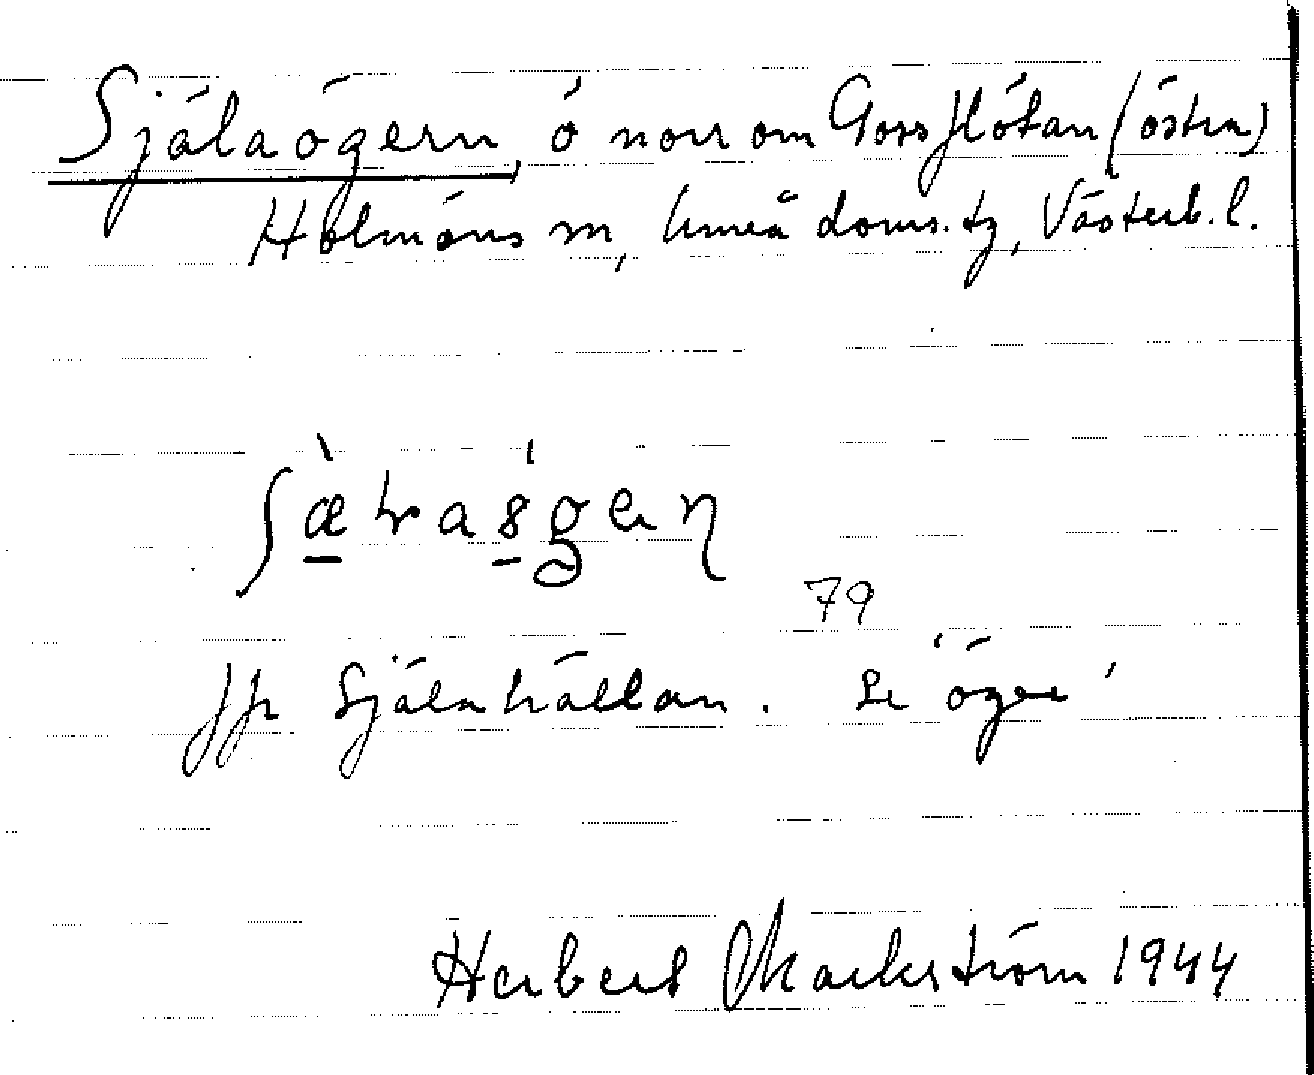 Själaögern, ö norr om Gossflötan (östra)
Holmöns sn, Umeå doms. tg, Västerb. l.
79
Jfr Själahällan. Se 'öger'
Herbert Markström 1944